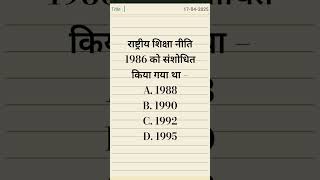 Title
17-04-2025
राष्ट्रीय शिक्षा नीति
1986 को संशोधित
किया गया था –
A. 1988
B. 1990
C. 1992
D. 1995